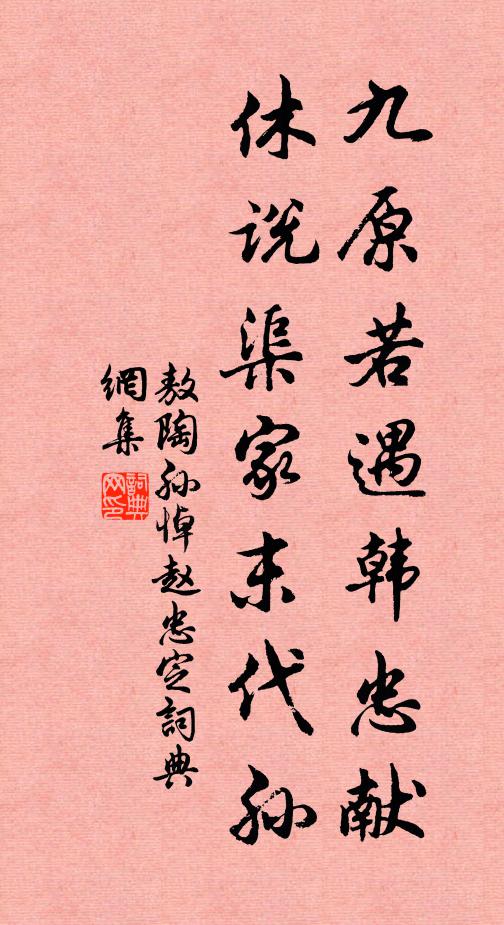 九原若遇韩忠献
休说渠家末代孙
敖陶孙悼赵忠定詞典
網集
詞典
网印